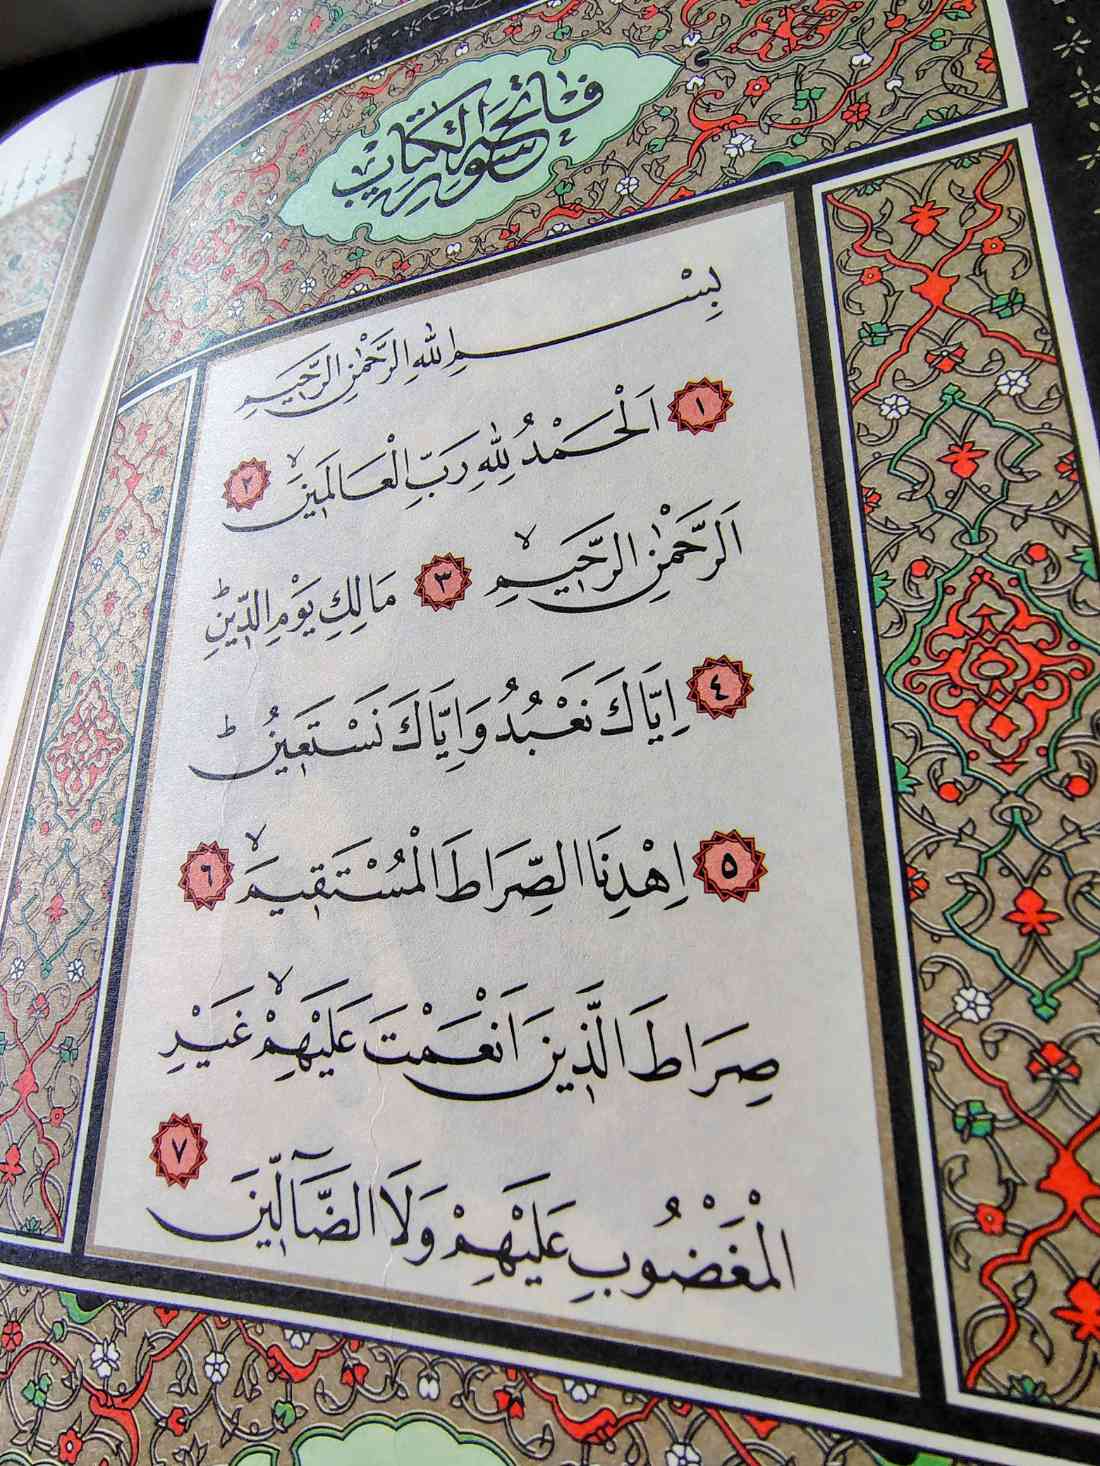 سورة فاتحة الكتاب
بِسْــــمِ اللهِ الرَّحْمٰنِ الرَّحِيمِ
١ اَلْحَمْدُ لِلّٰهِ رَبِّ الْعَالَمِينَۙ ٢
اَلرَّحْمٰنِ الرَّحِيمِۙ ٣ مَالِكِ يَوْمِ الدِّينِۜ
٤ اِيَّاكَ نَعْبُدُ وَاِيَّاكَ نَسْتَعِينُۜ
٥ اِهْدِنَا الصِّرَاطَ الْمُسْتَقِيمَۙ ٦
صِرَاطَ الَّذِينَ اَنْعَمْتَ عَلَيْهِمْۙ غَيْرِ
الْمَغْضُوبِ عَلَيْهِمْ وَلَا الضَّٓالِّينَ ٧